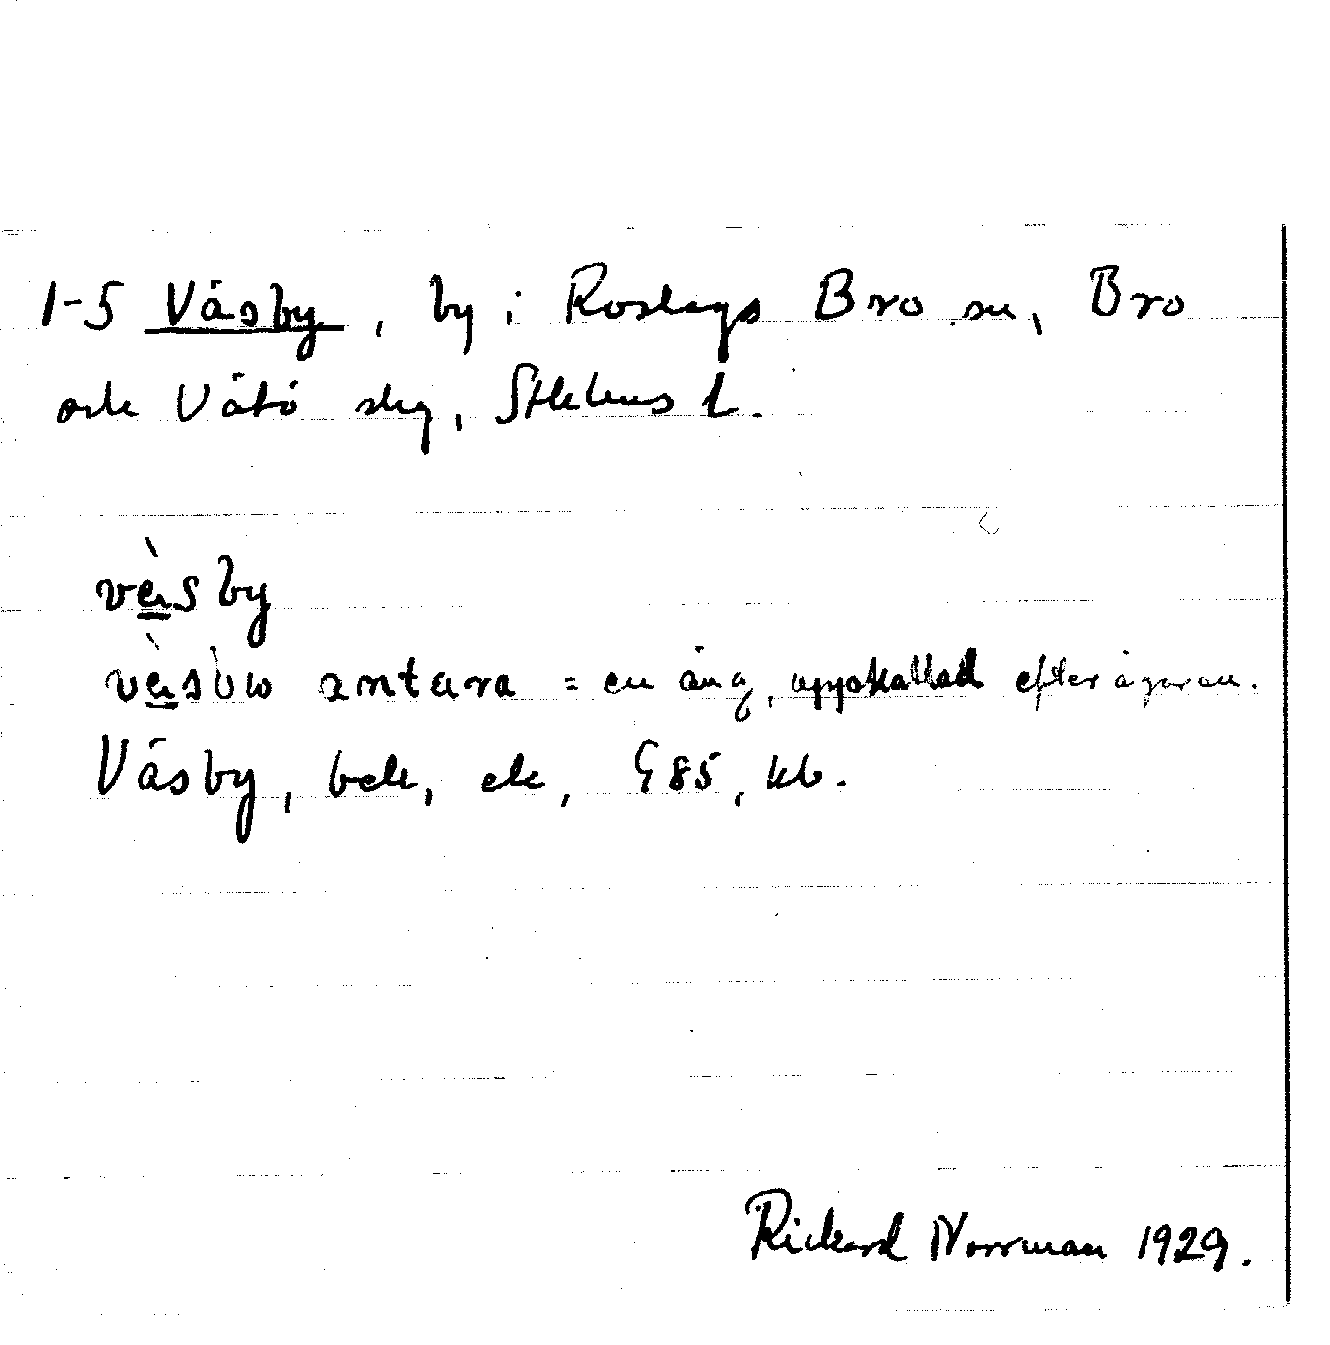 1-5 Väsby, by i Roslags Bro sn, Bro
och Vätö skg, Sthlms L.
vèsby
= en äng, uppkallad efter ägaren.
Väsby, bek, ek, G85, kb.
Rickard Norrman 1929.